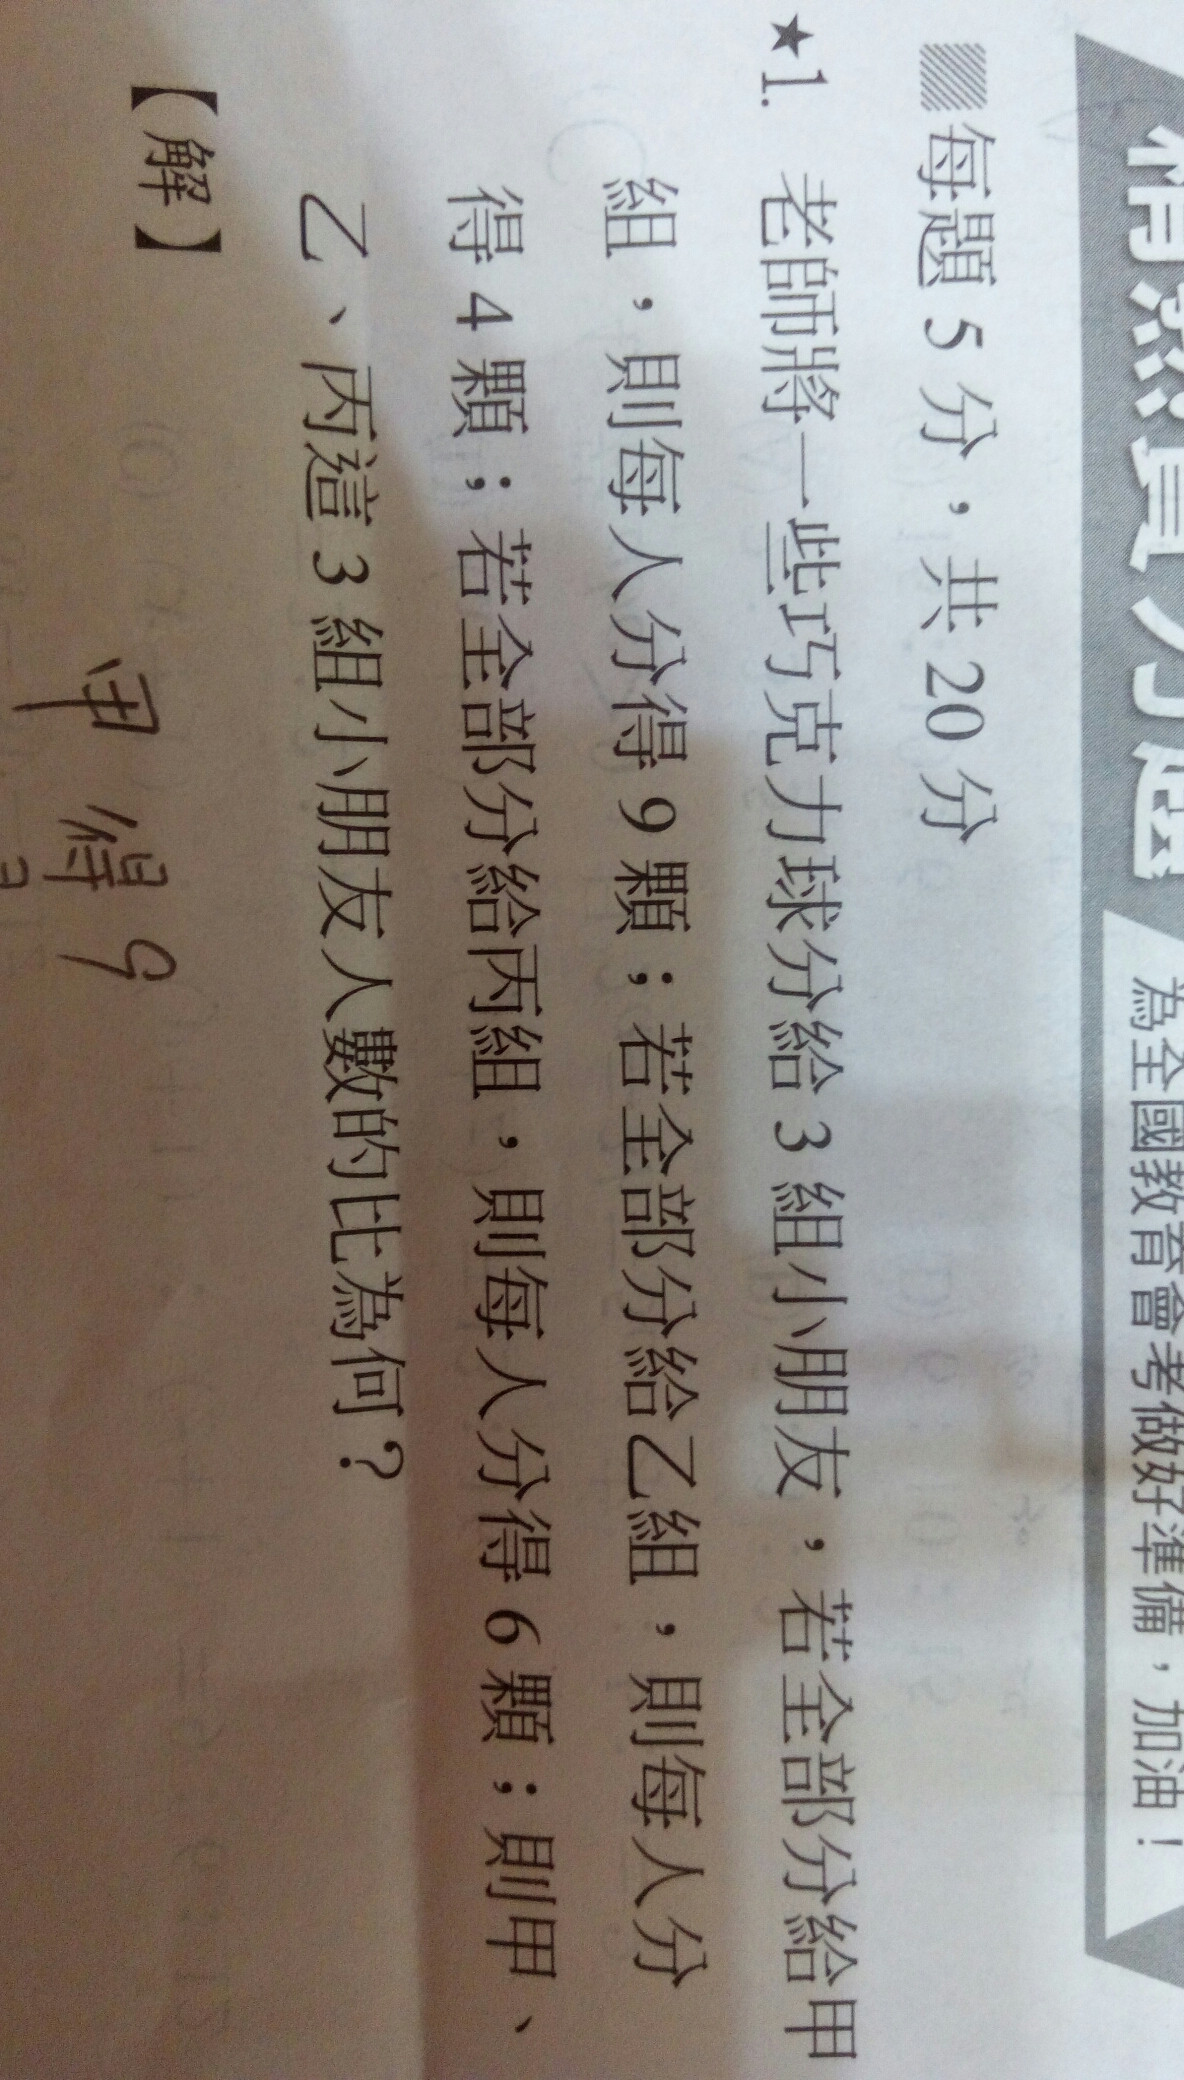 精熟實力題
為全國教育會考做好準備，加油！
每題 5 分，共 20 分
★1. 老師將一些巧克力球分給 3 組小朋友，若全部分給甲
組，則每人分得 9 顆；若全部分給乙組，則每人分
得 4 顆；若全部分給丙組，則每人分得 6 顆；則甲、
乙、丙這 3 組小朋友人數的比為何？
【解】
甲得9